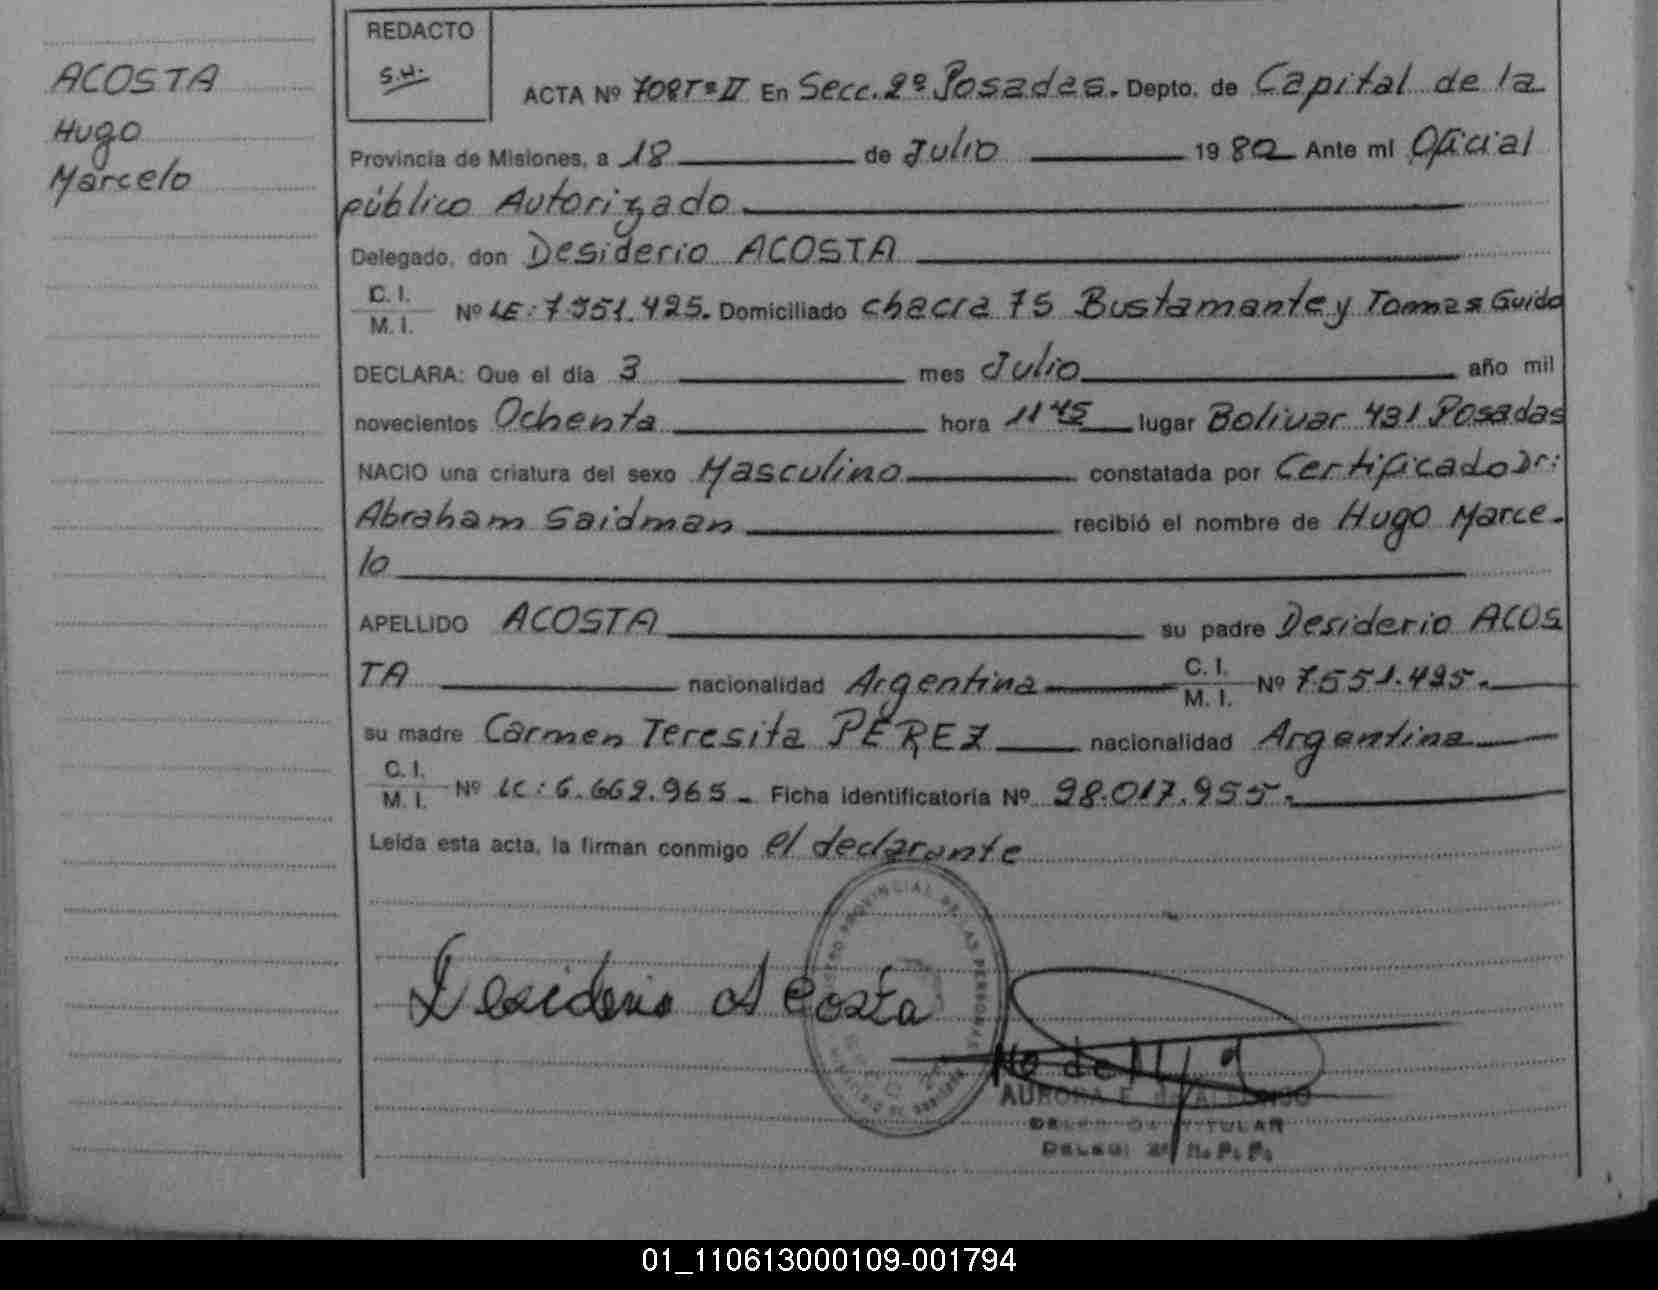 ACOSTA
Hugo
Marcelo
REDACTO
S.H.
ACTA Nº 708Tº II En Secc. 2º Posadas. Depto. de Capital de la
Provincia de Misiones, a 18 de Julio 1980 Ante mi Oficial
público Autorizado
Delegado, don Desiderio ACOSTA
C. I.
M. I. Nº LE: 7.551.495. Domiciliado chacra 75 Bustamante y Tommas Guido
DECLARA: Que el día 3 mes Julio año mil
novecientos Ochenta hora 11 45 lugar Bolivar 431 Posadas
NACIO una criatura del sexo Masculino constatada por Certificado Dr:
Abraham Saidman recibió el nombre de Hugo Marce-
lo
APELLIDO ACOSTA su padre Desiderio ACOS
TA nacionalidad Argentina C. I. M. I. Nº 7.551.495.
su madre Carmen Teresita PÉREZ nacionalidad Argentina
C. I.
M. I. Nº LC: 6.662.965 Ficha identificatoria Nº 98.017.955.
Leída esta acta, la firman conmigo el declarante
Desiderio Acosta
AURORA E.
TITULAR
DELEG: 2ª R. P. P.
01_110613000109-001794